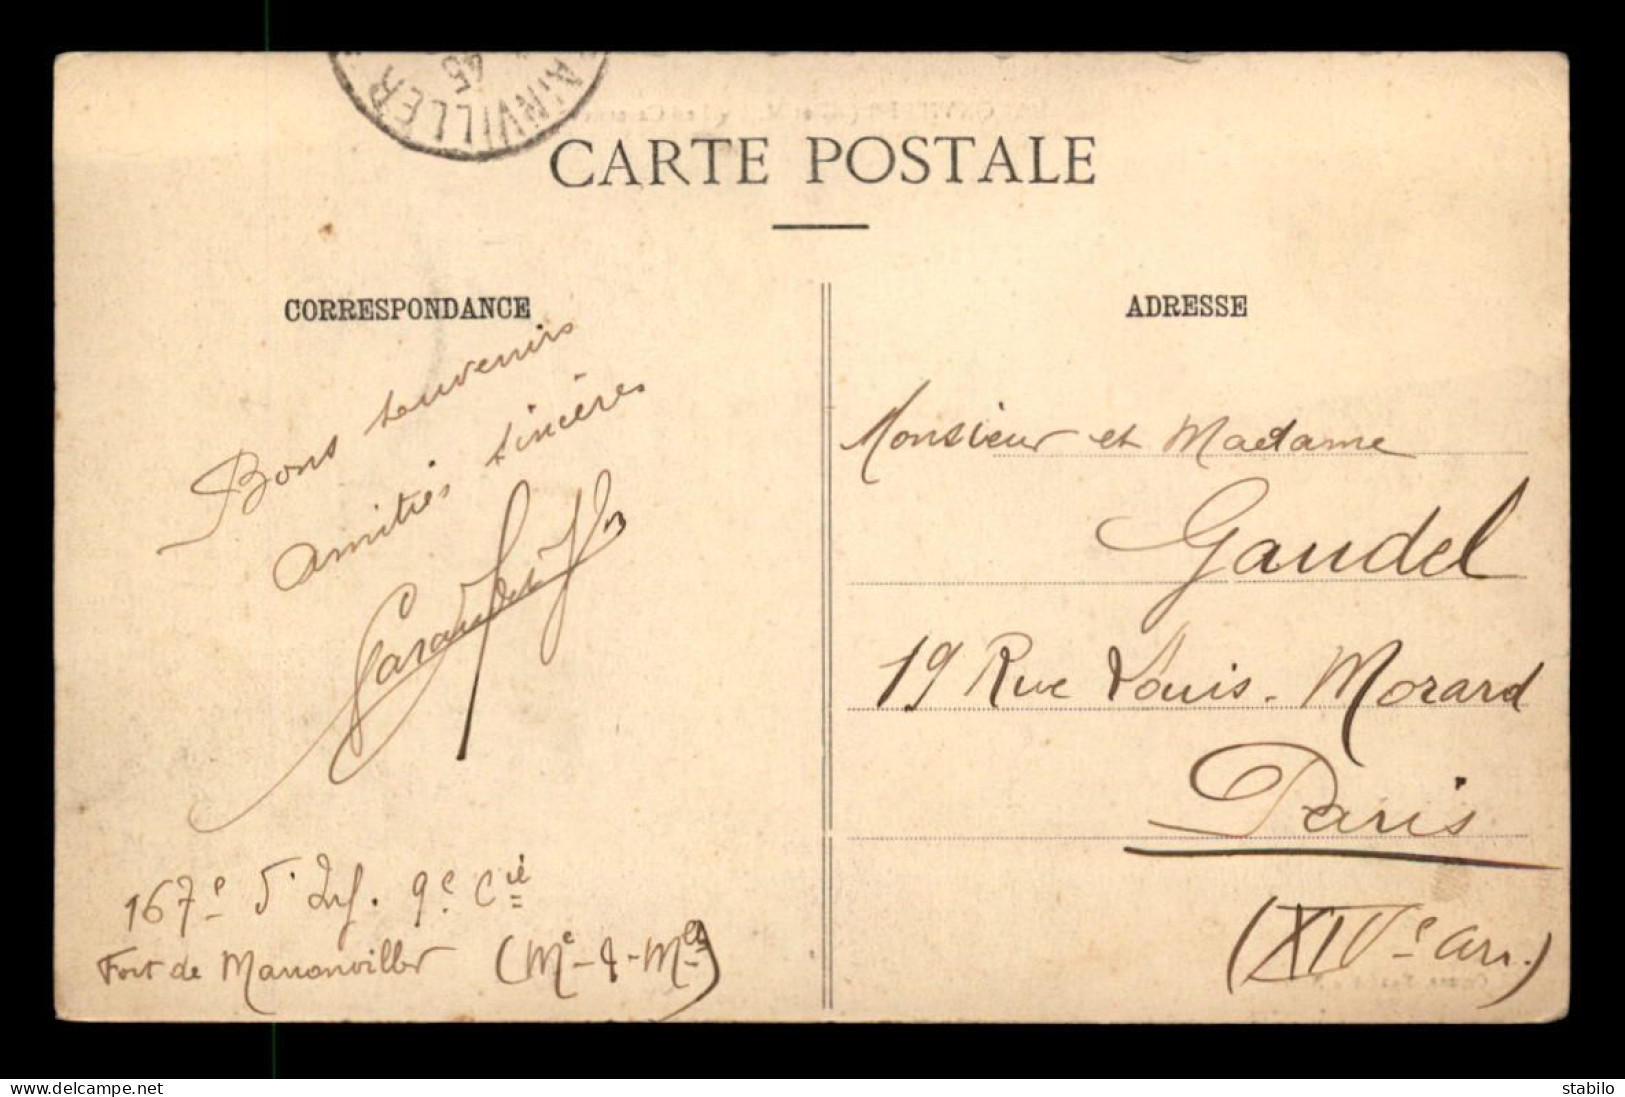 AINVILLER
45
CARTE POSTALE
CORRESPONDANCE
ADRESSE
Bons souvenirs
amitiés sincères
167e d'Inf. 9e Cie
Fort de Manonviller (Me-&-Mlle)
Monsieur et Madame
Gaudel
19 Rue Louis-Morard
Paris
(XIVe arr.)
www.delcampe.net
stabilo